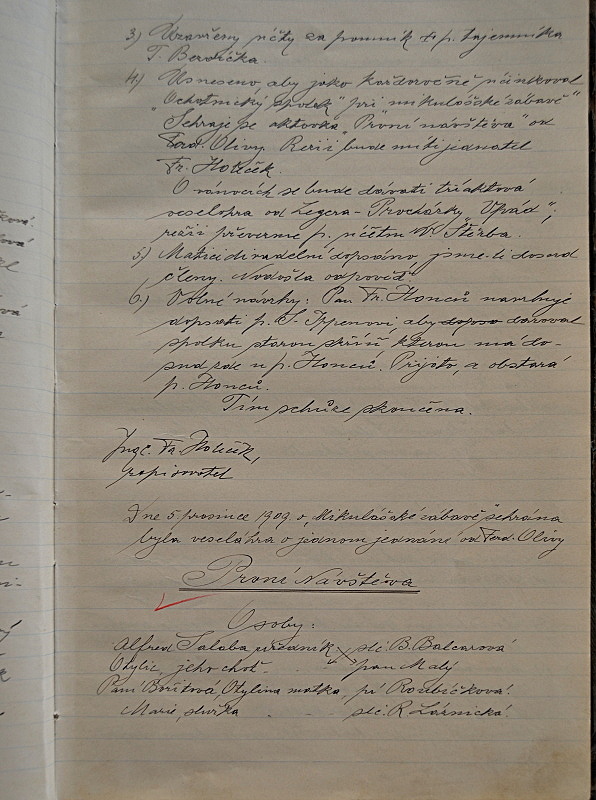 3.) Uzavřeny účty za pomník + p. tajemníka
T. Berdička.
4.) Usneseno, aby jako každoročně účinkoval
„Ochotnický spolek" při „mikulášské zábavě"
Sehraje se aktovka „První návštěva" od
Ferd. Olivy. Režii bude míti jednatel
Fr. Holeček.
O vánocích se bude dávati tříaktová
veselohra od Legera-Procházky „
režii převezme p. účetní V. Štěrba.
5.) Matici divadelní dopsáno, jsme-li dosud
členy. Nedošla odpověď.
6.) Volné návrhy: Pan Fr. Honců navrhuje
dopsati p. S. aby dopso daroval
spolku starou skříň, kterou má do-
sud zde u p. Honců. Přijato, a obstará
p. Honců.
Tím schůze skončena.
Fr. Holeček,
zapisovatel
Dne 5. prosince 1909 o „Mikulášské zábavě" sehrána
byla veselohra o jednom jednání od Ferd. Olivy
První Návštěva
Osoby:
Alfred Salaba úředník slč. B. Balcarová
Otylie, jeho choť pan Malý
Paní Otylina matka pí Roubíčková.
Marie, služka slč. R. Lážnická.